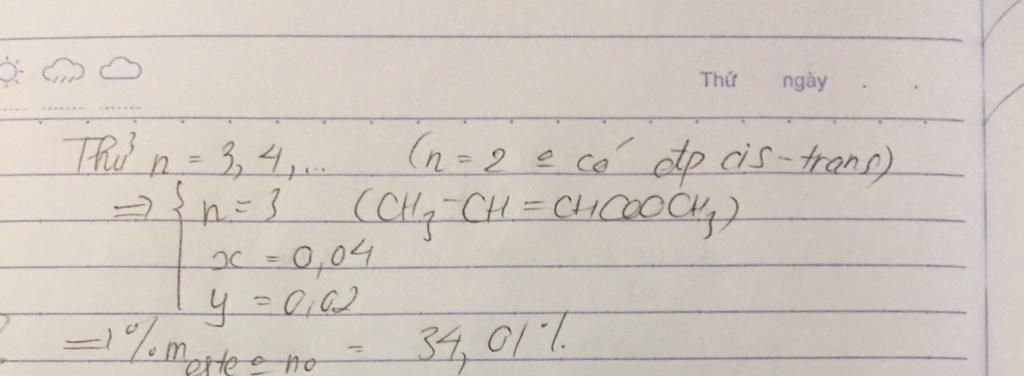 Thứ ngày
Thử n = 3, 4,... (n = 2 o có đp cis-trans)
⇒ { n = 3 (CH3-CH = CHCOOCH3)
x = 0,04
y = 0,02
⇒ % m este o no = 34,01%